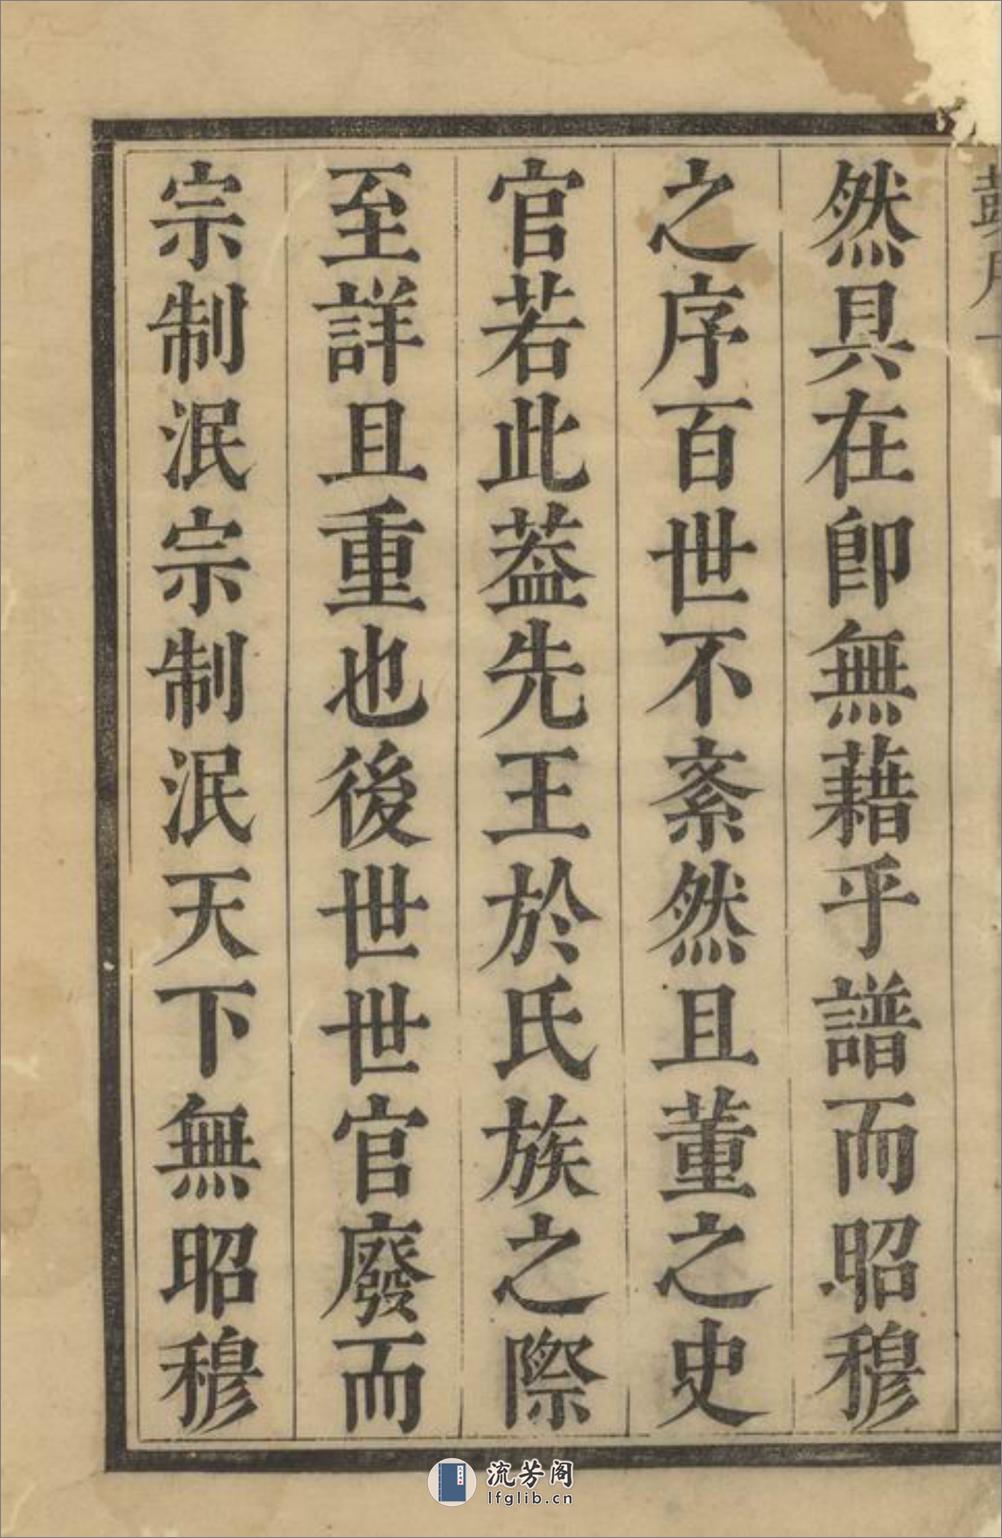 然具在卽無藉乎譜而昭穆
之序百世不紊然且董之史
官若此葢先王於氏族之際
至詳且重也後世世官廢而
宗制泯宗制泯天下無昭穆
流芳阁
lfglib.cn